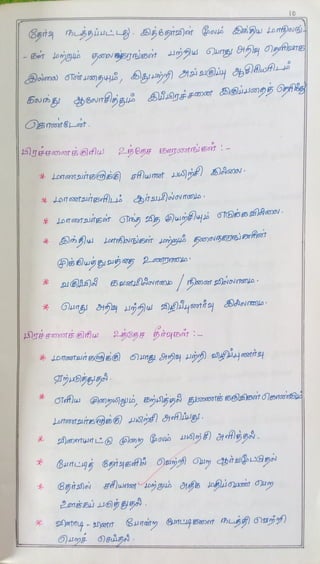 10
தேர்வு நடத்தப்பட்டது. இத்தேர்வின் மூலம் இந்திய மாநிலங்
-கள் மற்றும் தலைநகரங்கள் பற்றிய பொது அறிவு தெளிவாக
இல்லை என்பதையும், இதுபற்றி அவ்வகுப்பு ஆசிரியரிடம்
கலந்து ஆலோசித்தும் இப்பிரச்சனை இருப்பதைத் தெரிந்து
கொண்டேன்.
பிரச்சனைக்குரிய உத்தேச காரணங்கள் :-
* மாணவர்களுக்கு சரியான பயிற்சி இல்லை.
* மாணவர்களிடம் ஆர்வமில்லாமை.
* மாணவர்கள் எந்த வித முயற்சியும் எடுக்கவில்லை.
* இந்திய மாநிலங்கள் மற்றும் தலைநகரங்களின்
முக்கியத்துவத்தை உணராமை.
* வகுப்பில் கவனமில்லாமை / நினைவில்லாமை.
* பொது அறிவு பற்றிய விழிப்புணர்வு இல்லாமை.
பிரச்சனைக்குரிய உத்தேச தீர்வுகள் :-
* மாணவர்களுக்கு பொது அறிவு பற்றி விழிப்புணர்வு
ஏற்படுத்துதல்.
* எளிய முறையிலும், கற்பித்தல் துணைக்கருவிகள் கொண்டும்
மாணவர்களுக்கு பயிற்சி அளிப்பது.
* விளையாட்டு முறை மூலம் பயிற்சி அளித்தல்.
* போட்டித் தேர்வுகளில் வெற்றி பெற ஆர்வமூட்டுதல்
* தேர்வில் சரியான மற்றும் அதிக மதிப்பெண் பெற
ஊக்கப் படுத்துதல்.
* வினாடி - வினா போன்ற போட்டிகளை நடத்தி வெற்றி
பெறச் செய்தல்.